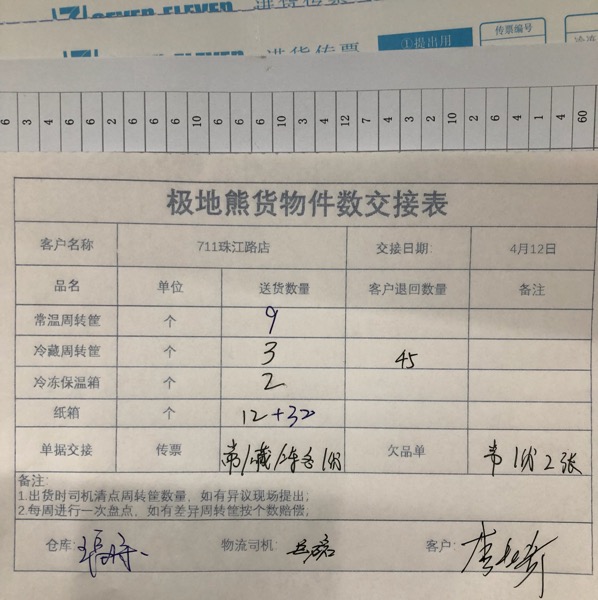 7 SEVEN-ELEVEN
7 SEVEN-ELEVEN 进货传票 ①提出用 传票编号
6 3 4 6 6 2 6 6 6 10 6 6 10 3 4 12 7 4 3 2 10 2 6 1 4 60
极地熊货物件数交接表
客户名称 711珠江路店 交接日期: 4月12日
品名 单位 送货数量 客户退回数量 备注
常温周转筐 个 9
冷藏周转筐 个 3 45
冷冻保温箱 个 2
纸箱 个 12+32
单据交接 传票 常/藏/冻各1份 欠品单 常1份2张
备注:
1.出货时司机清点周转筐数量,如有异议现场提出;
2.每周进行一次盘点,如有差异周转筐按个数赔偿;
仓库: 物流司机: 客户: